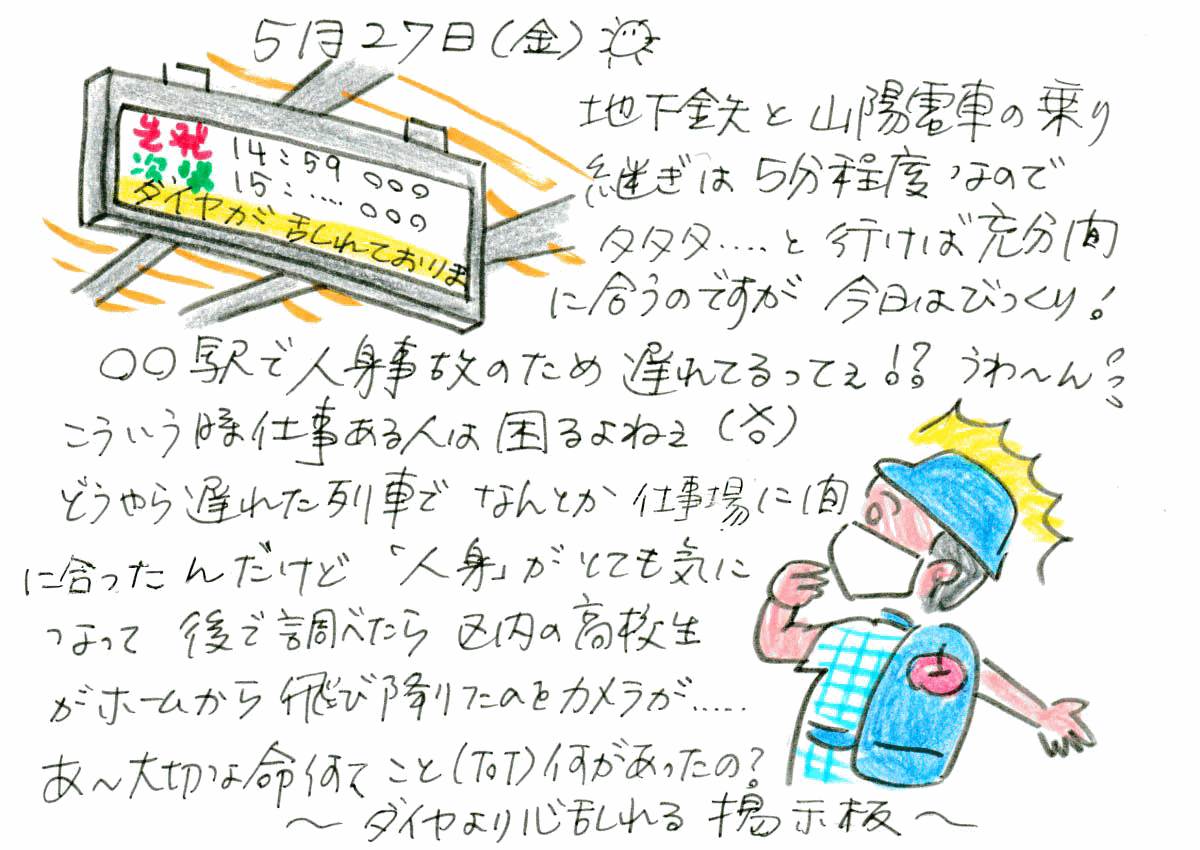 5月27日(金)
先発 14:59 ○○○
次発 15:.... ○○○
ダイヤが乱れておりま
地下鉄と山陽電車の乗り
継ぎは5分程度なので
タタタ.....と行けば充分間
に合うのですが 今日はびっくり!
○○駅で人身事故のため遅れてるってぇ!? うわ~ん
こういう時仕事ある人は困るよねぇ(答)
どうやら遅れた列車でなんとか仕事場に間
に合ったんだけど「人身」がとても気に
なって 後で調べたら 区内の高校生
がホームから飛び降りたのをカメラが......
あ~大切な命何てこと(ToT)何があったの?
~ダイヤより心乱れる掲示板~